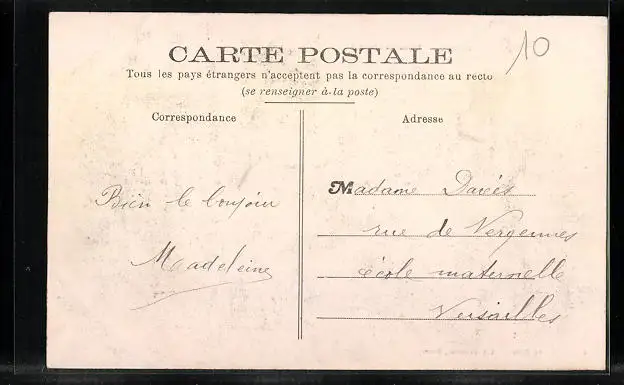 10
CARTE POSTALE
Tous les pays étrangers n'acceptent pas la correspondance au recto
(se renseigner à la poste)
Correspondance
Adresse
Bien le bonjour
Madeleine
Madame Davés
rue de Vergennes
école maternelle
Versailles